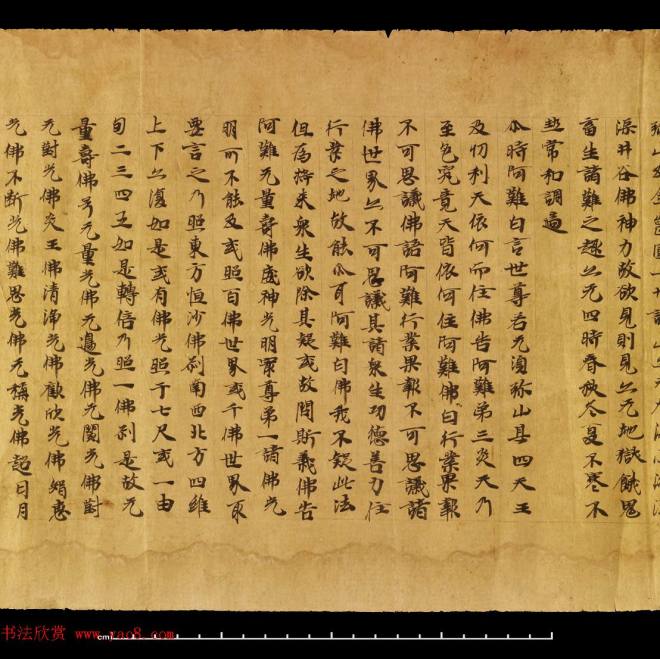 渠井谷佛神力故欲見則見亦无地獄餓鬼
畜生諸難之趣亦无四時春秋冬夏不寒不
熱常和調適
尔時阿難白言世尊若无須弥山其四天王
及忉利天依何而住佛告阿難第三炎天乃
至色究竟天皆依何住阿難佛曰行業果報
不可思議佛語阿難行業果報不可思議諸
佛世界亦不可思議其諸衆生功德善力住
行業之地故能尔耳阿難白佛我不疑此法
但為將来衆生欲除其疑或故問斯義佛告
阿難无量壽佛威神光明最尊第一諸佛光
明所不能及或照百佛世界或千佛世界取
要言之乃照東方恒沙佛刹南西北方四維
上下亦復如是或有佛光照于七尺或一由
旬二三四五如是轉倍乃照一佛刹是故无
量壽佛号无量光佛无邊光佛无閡光佛對
无對光佛炎王佛清淨光佛歡欣光佛惠
光佛不断光佛難思光佛无稱光佛超日月
书法欣赏 www.yac8.com
cm